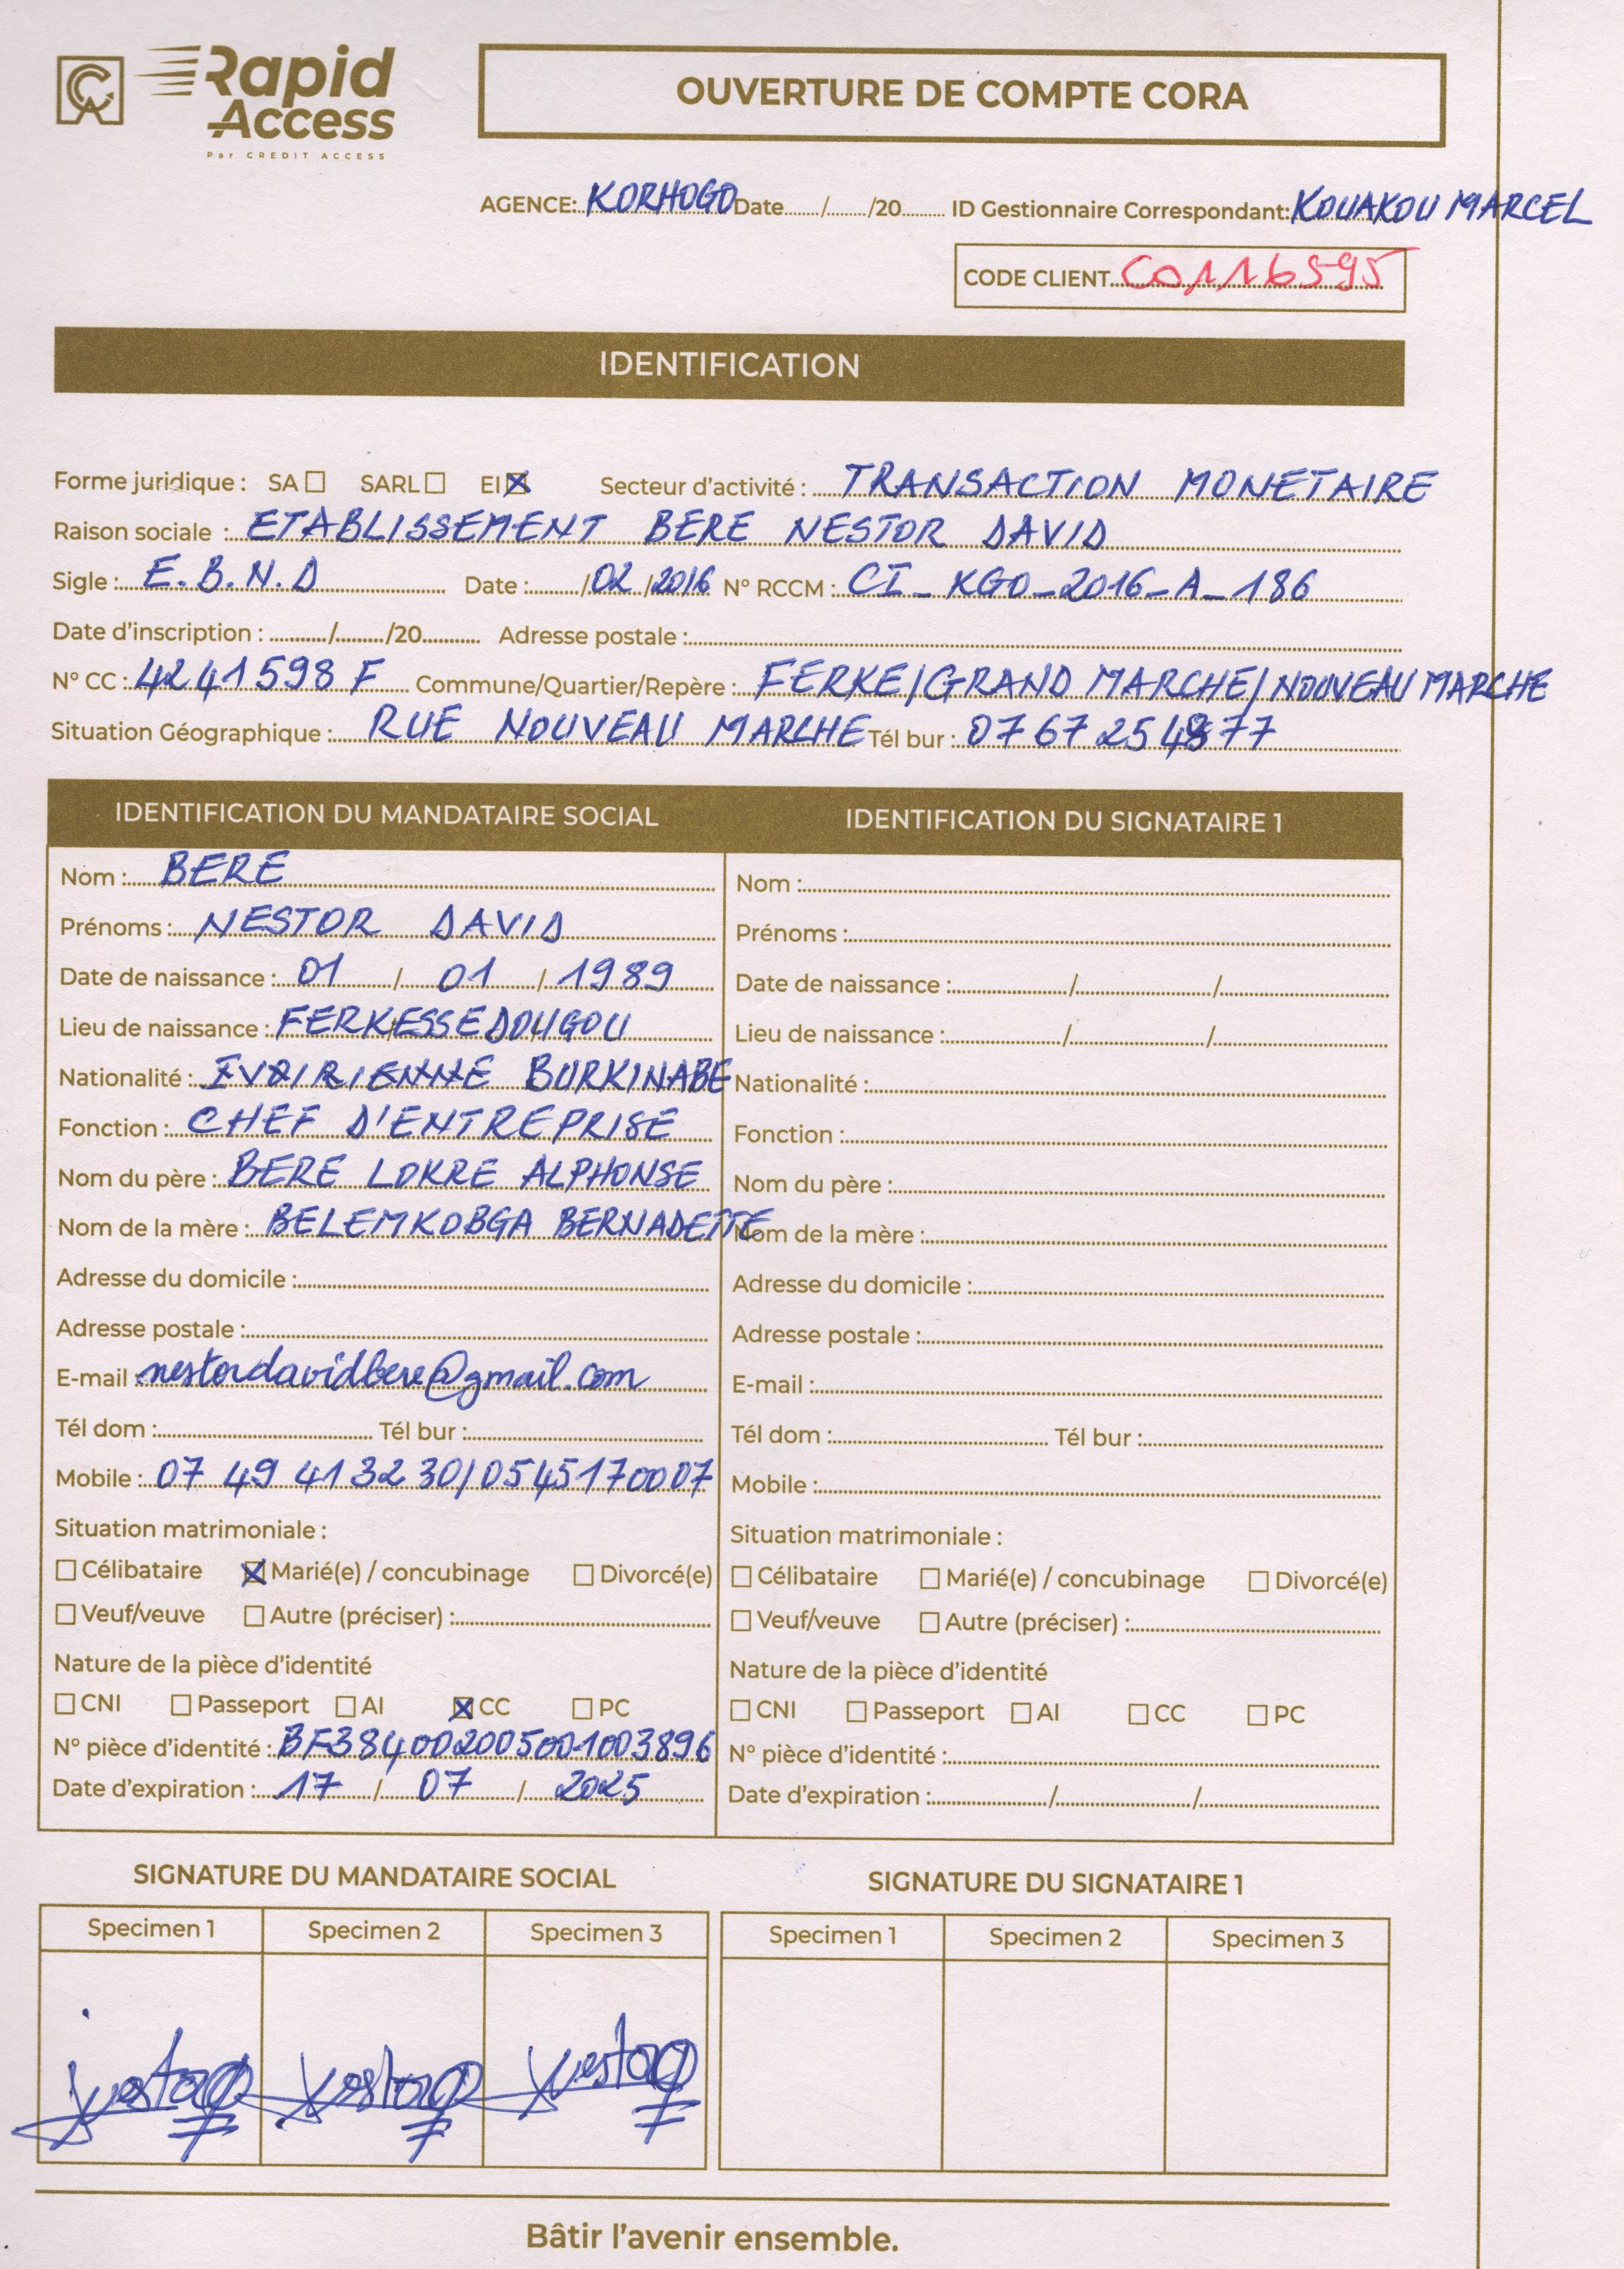 CA Rapid Access
Par CREDIT ACCESS
OUVERTURE DE COMPTE CORA
AGENCE: KORHOGO Date....../....../20...... ID Gestionnaire Correspondant: KOUAKOU MARCEL
CODE CLIENT C0116595
IDENTIFICATION
Forme juridique : SA ☐ SARL ☐ EI ☒ Secteur d'activité : TRANSACTION MONETAIRE
Raison sociale : ETABLISSEMENT BERE NESTOR DAVID
Sigle : E.B.N.D Date : ....../02/2016 N° RCCM : CI_KGO_2016_A_186
Date d'inscription : ....../....../20...... Adresse postale :
N° CC : 4241598 F Commune/Quartier/Repère : FERKE/GRAND MARCHE/NOUVEAU MARCHE
Situation Géographique : RUE NOUVEAU MARCHE Tél bur :
IDENTIFICATION DU MANDATAIRE SOCIAL
Nom : BERE
Prénoms : NESTOR DAVID
Date de naissance : 01 / 01 / 1989
Lieu de naissance : FERKESSEDOUGOU
Nationalité : IVOIRIENNE BURKINABE
Fonction : CHEF D'ENTREPRISE
Nom du père : BERE LOKRE ALPHONSE
Nom de la mère : BELEMKOBGA BERNADETTE
Adresse du domicile :
Adresse postale :
E-mail : nestordavidbere@gmail.com
Tél dom : Tél bur :
Mobile : 07 49 41 32 30/0545170007
Situation matrimoniale :
☐ Célibataire ☒ Marié(e) / concubinage ☐ Divorcé(e)
☐ Veuf/veuve ☐ Autre (préciser) :
Nature de la pièce d'identité
☐ CNI ☐ Passeport ☐ AI ☒ CC ☐ PC
N° pièce d'identité : BF384002005001003896
Date d'expiration : 17 / 07 / 2025
IDENTIFICATION DU SIGNATAIRE 1
Nom :
Prénoms :
Date de naissance : / /
Lieu de naissance : / /
Nationalité :
Fonction :
Nom du père :
Nom de la mère :
Adresse du domicile :
Adresse postale :
E-mail :
Tél dom : Tél bur :
Mobile :
Situation matrimoniale :
☐ Célibataire ☐ Marié(e) / concubinage ☐ Divorcé(e)
☐ Veuf/veuve ☐ Autre (préciser) :
Nature de la pièce d'identité
☐ CNI ☐ Passeport ☐ AI ☐ CC ☐ PC
N° pièce d'identité :
Date d'expiration : / /
SIGNATURE DU MANDATAIRE SOCIAL
Specimen 1 Specimen 2 Specimen 3
SIGNATURE DU SIGNATAIRE 1
Specimen 1 Specimen 2 Specimen 3
Bâtir l'avenir ensemble.